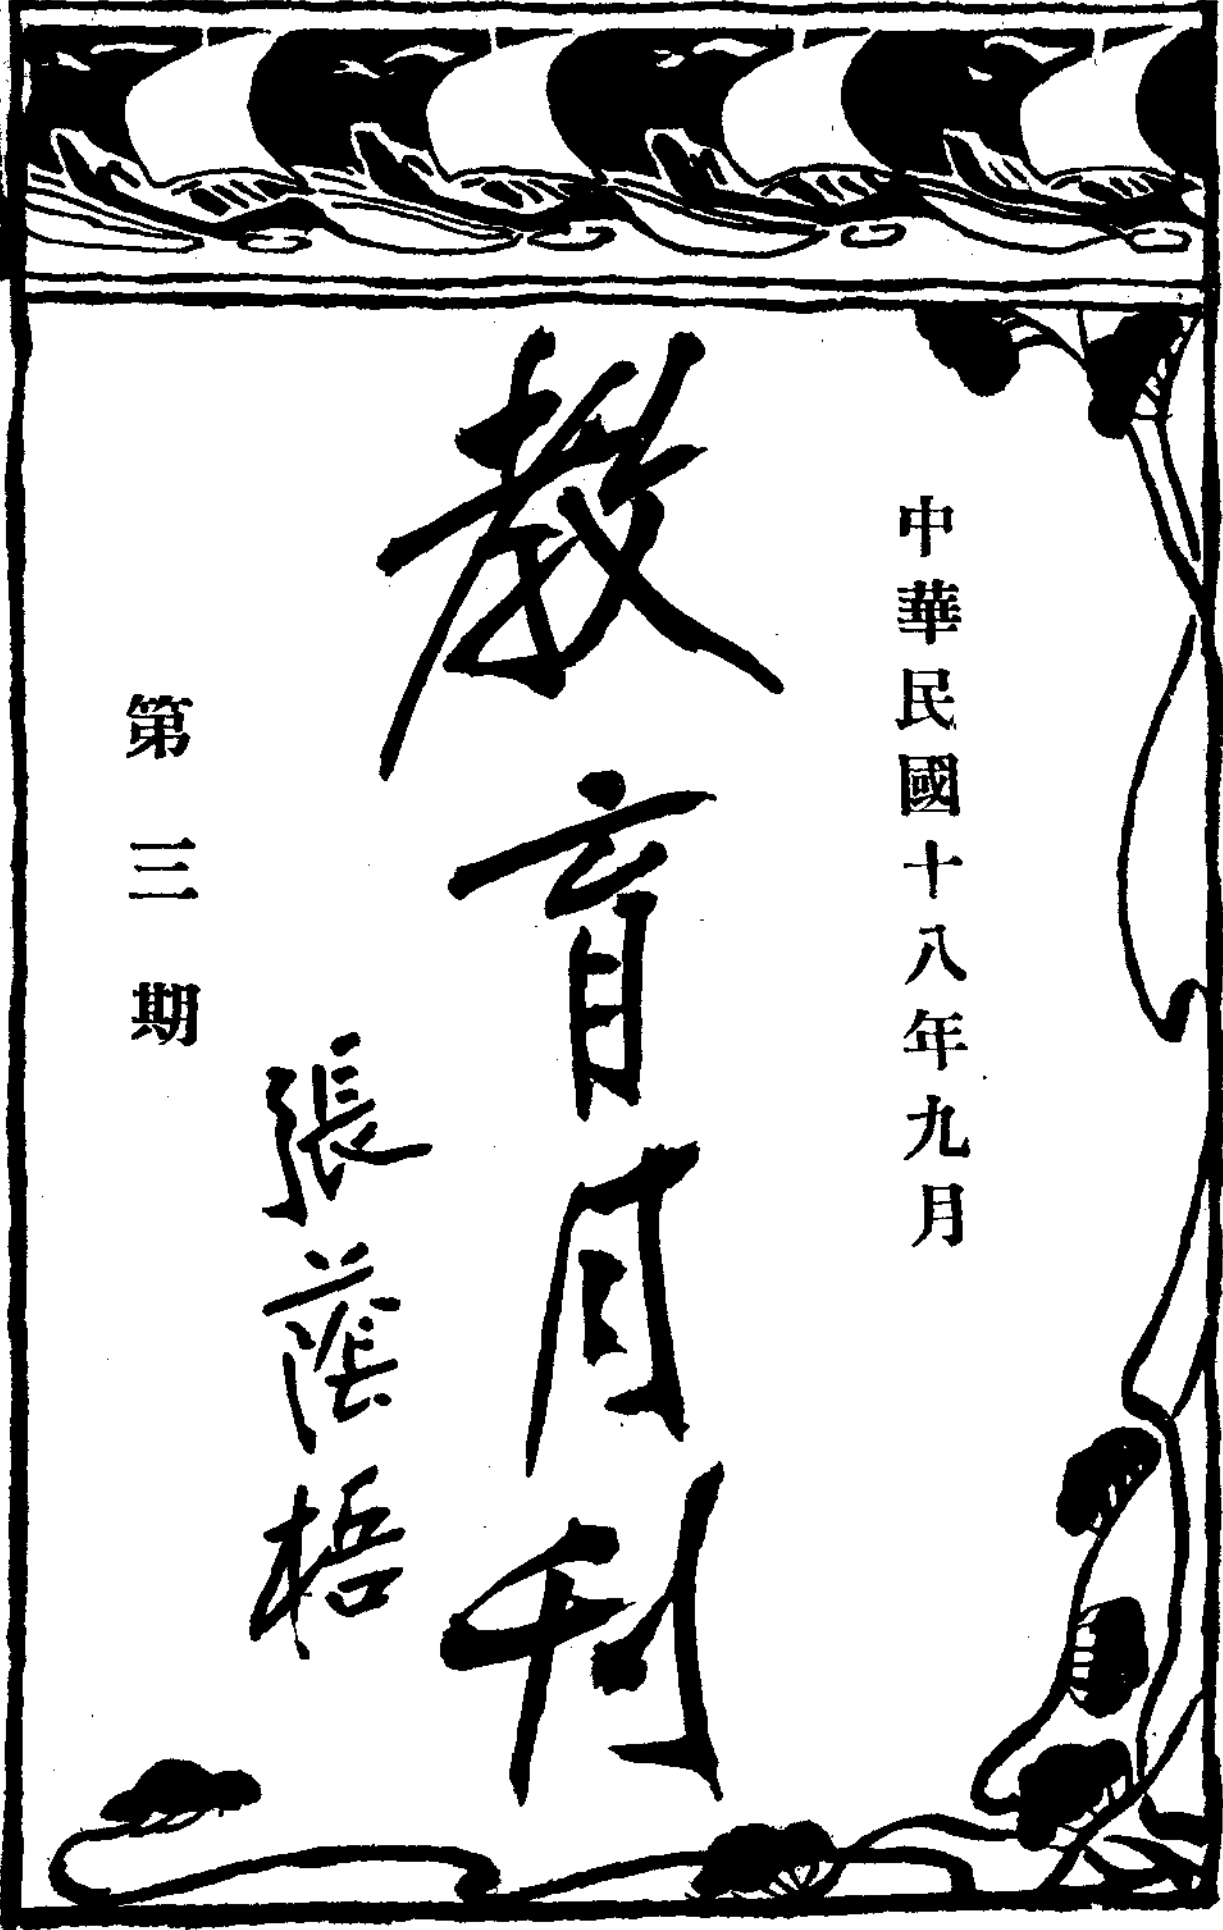 中華民國十八年九月
教育月刊
張蔭梧
第三期